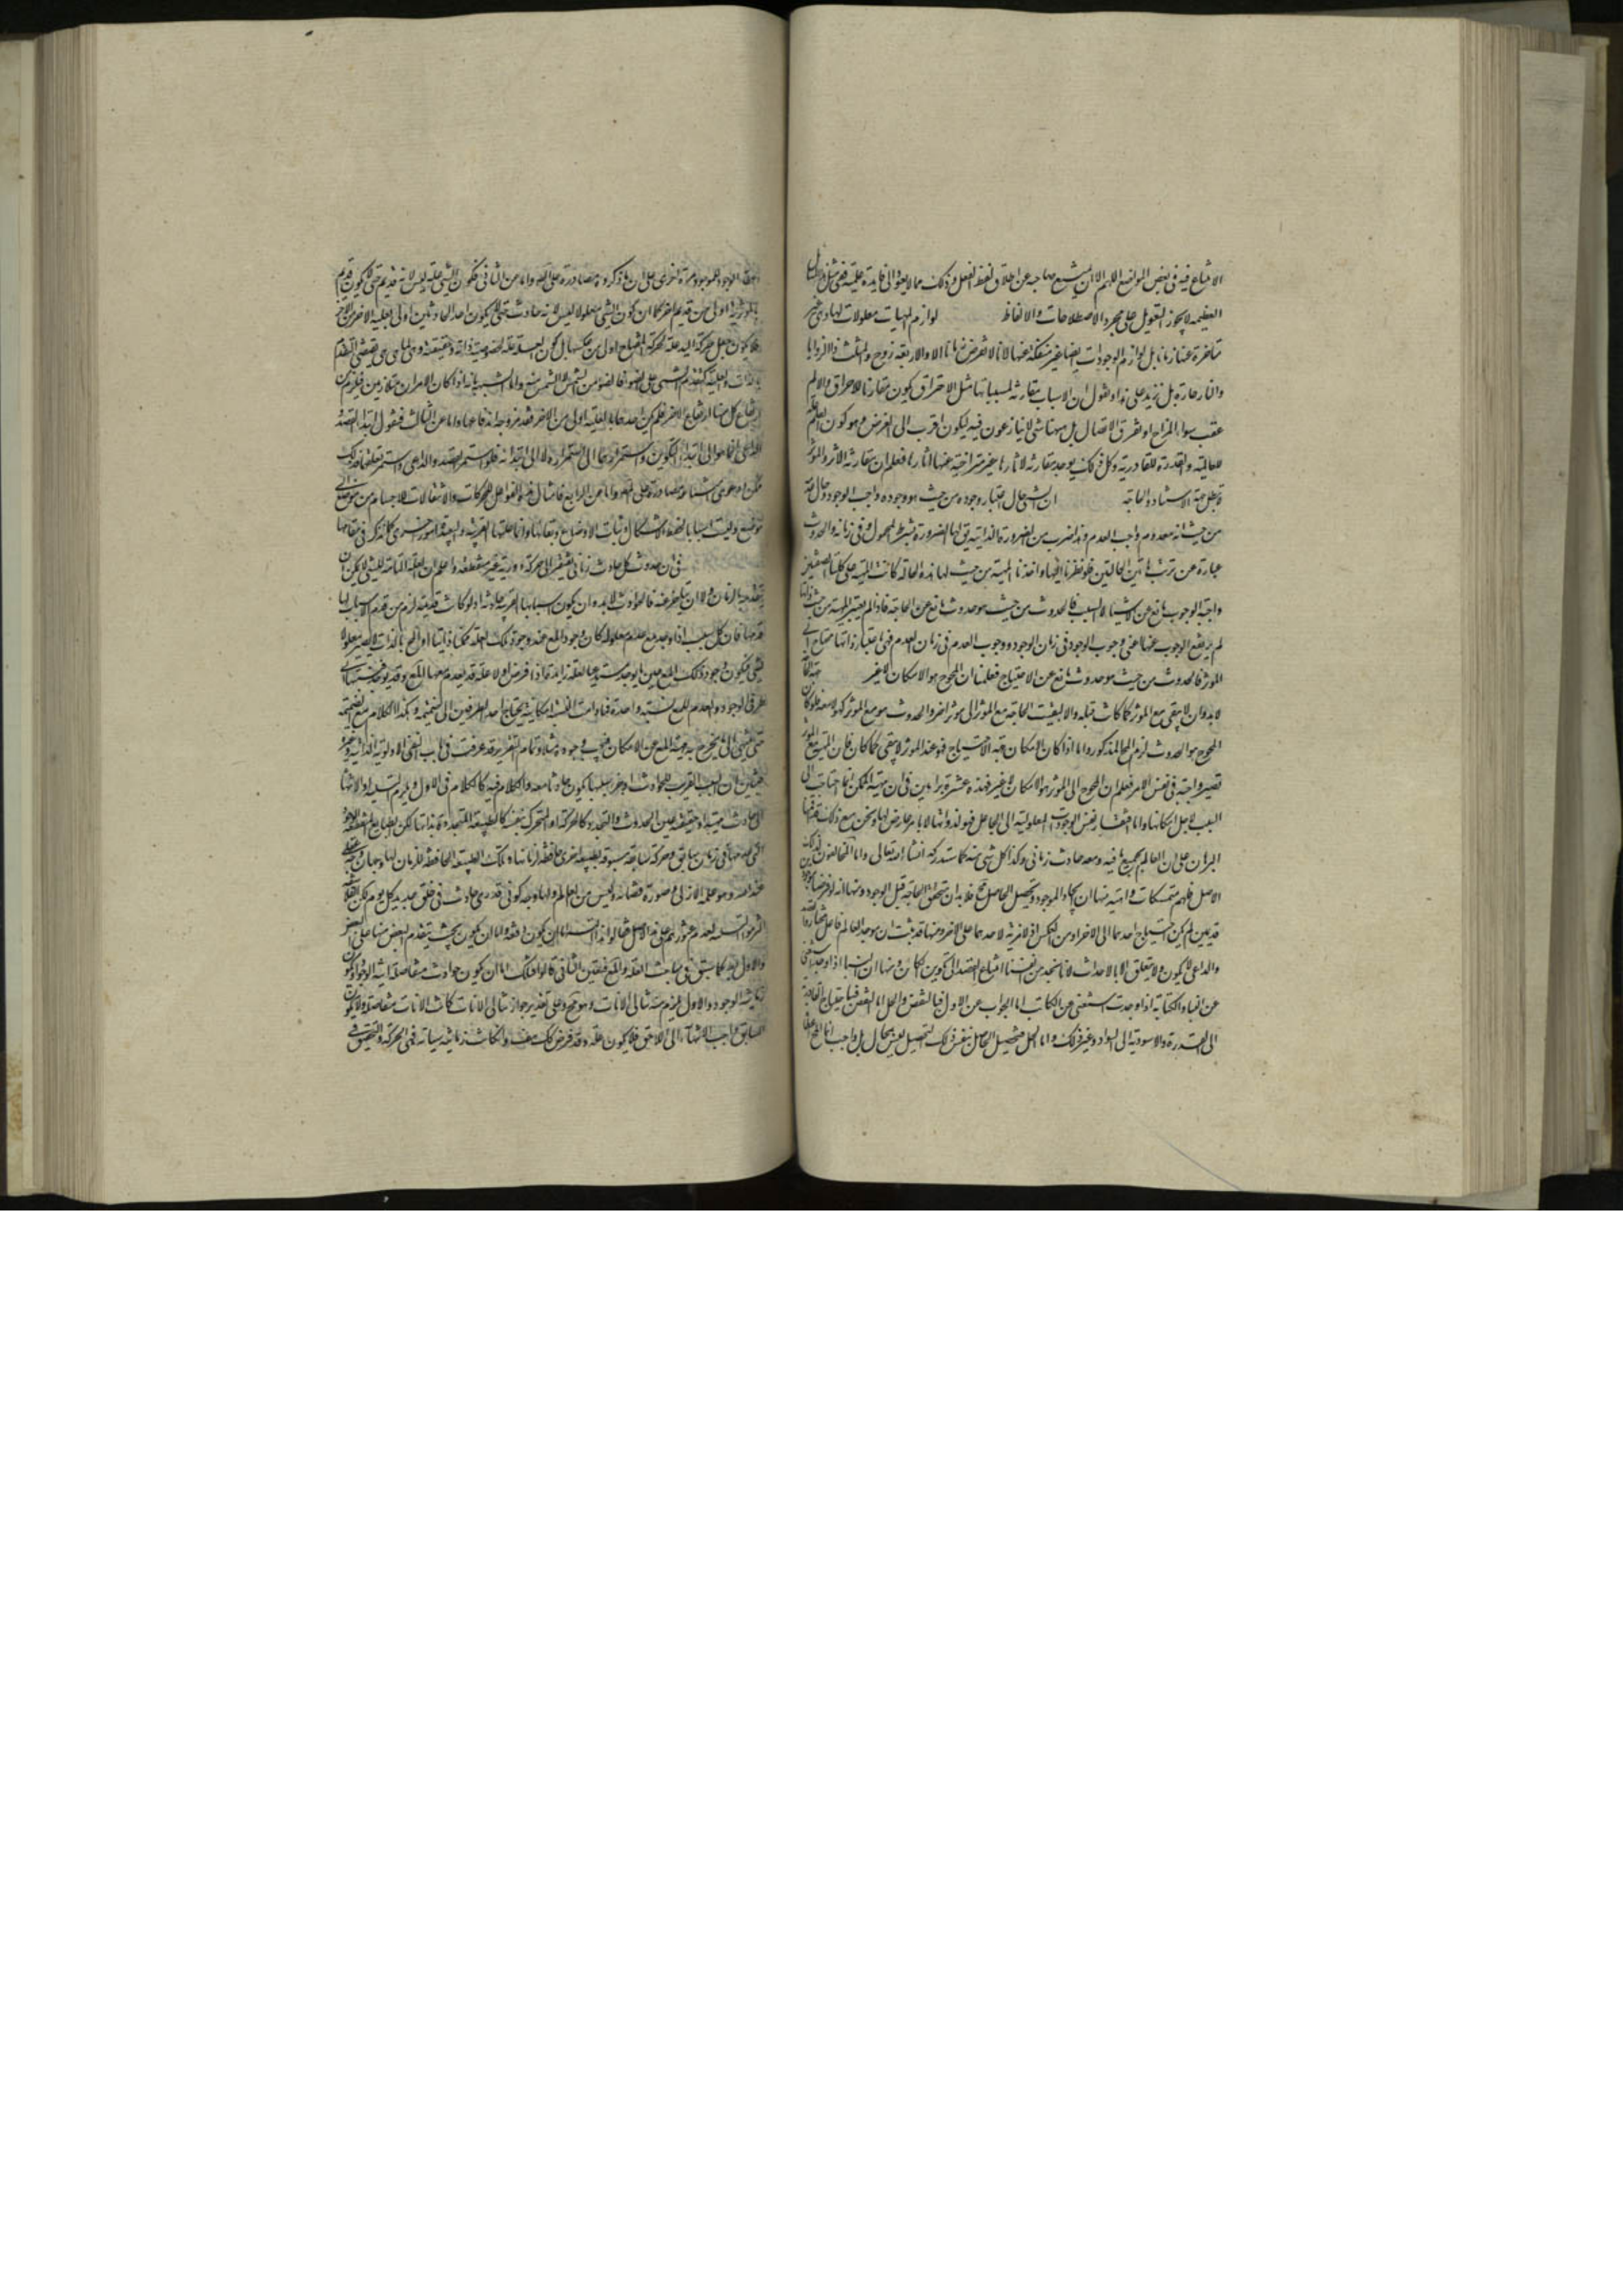 الامتناع فيه فى بعض المواضع اللهم الا ان يتشبع صاحبه عن اطلاق لفظ الفعل وذلك مما لا يعود الى فايدة علمية ففى مثل
العظيمة لا يجوز التعويل على مجرد الاصطلاحات والالفاظ لوازم المهيات معلولات لها وهى غير
متاخرة عنها زمانا بل لوازم الوجودات ايضا غير منفكة عنها لانا لا نفرض زمانا الا والاربعة زوج والمثلث ذا الزوايا
والنار حارة بل نزيد على هذا ونقول ان الاسباب مقارنة لمسبباتها مثل الاحتراق يكون مقارنا للاحراق والالم
عقيب سوء المزاج او تفرق الاتصال بل ههنا شئ لا ينازعون فيه ليكون اقرب الى الغرض وهو كون العلم
للعالمية والقدرة للقادرية وكل ذلك يوجد مقارنة لاثارها غير متراخية عنها اثارها فعلم ان مقارنة الاثر والموثر
لا يبطل جهة الاستناد والحاجة ان الشئ حال اعتبار وجوده من حيث هو وجوده واجب الوجود وحال
من حيث انه معدوم واجب العدم وهذا ضرب من الضرورة الذاتية يق لها الضرورة بشرط المحمول وفى زمانه والحدوث
عبارة عن ترتب هاتين الحالتين فلو نظرنا اليها واخذنا المهية من حيث لها هذه الحالة كانت المهية على كلتا الصفتين
واجبة الوجوب مانع عن الاستناد الى السبب فالحدوث من حيث هو حدوث مانع عن الحاجة فاذا لم يعتبر المهية من حيث ذاتها
لم يرتفع الوجوب عنها اعنى وجوب الوجود فى زمان الوجود ووجوب العدم فى زمان العدم فهى باعتبار ذاتها محتاجة الى
الموثر فالحدوث من حيث هو حدوث مانع عن الاحتياج فعلمنا ان المحوج هو الامكان لا غير
لابد وان لا يبقى مع الموثر كما كانت قبله والا لبقيت الحاجة مع الموثر الى موثر اخر والحدوث هو مع الموثر كهو لا معه فلو كان
المحوج هو الحدوث لزم المح المذكور واما اذا كان الامكان جهة الاحتياج فهو عند الموثر لا يبقى كما كان فان المهية مع الموثر
تصير واجبة فى نفس الامر فعلم ان المحوج الى الموثر هو الامكان لا غير فهذه عشرة براهين فى ان مهية الممكن انما احتاجت الى
السبب لاجل امكانها واما افتقار نفس الوجودات المعلولية الى الجاعل فهو لذواتها لا بامر عارض لها ونحن مع ذلك
البرهان على ان العالم بجميع ما فيه ومعه حادث زمانى وكذا كل شئ منه كما ستدركه انشاء الله تعالى واما المخالفون لذلك
الاصل فلهم متمسكات واهية منها ان ايجاد الموجود وتحصيل الحاصل مح فلابد ان يتحقق الحاجة قبل الوجود ومنها انه لو فرضنا
قديمين لم يكن احتياج احدهما الى الاخر اولى من العكس اذ لا مزية لاحدهما على الاخر ومنها قد ثبت ان موجد العالم فاعل مختار
والداعى لا يكون ولا يتعلق الا بالاحداث لانا نجد من نفسنا امتناع القصد الى تكوين الكائن ومنها ان البناء اذا وجد استغنى
عن البناء والكتابة اذا وجدت استغنى عن الكاتب اما الجواب عن الاول فبالنقض والحل اما النقض فباحتياج العالمية
الى القدرة والاسودية الى السواد وغير ذلك واما الحل فتحصيل الحاصل بنفس ذلك التحصيل ليس بمحال بل واجب انما المح
اعطاء الوجود للموجود مرة اخرى على ان ما ذكروه مصادرة على المط واما عن الثانى فكون الشئ علة ليس لانه قديم حتى لا يكون قديم
بالموثرية اولى من قديم اخر كما ان كون الشئ معلولا ليس لانه حادث حتى لا يكون احد الحادثين اولى بالعلية للاخر من الاخر
فلا يكون جعل حركة اليد علة لحركة المفتاح اولى من عكسها بل كون العلة علة لخصوصية ذاته وحقيقته وهى لما هى هى يقتضى التقدم
بالذات والعلية كتقدم الشمس على الضوء فالضوء من الشمس لا الشمس منه واما التشبيه بانه اذا كان الامران متلازمين فيلزم من
ارتفاع كل منهما ارتفاع الاخر فلم يكن احدهما بالعلية اولى من الاخر فقد مر وجه اندفاعها واما عن الثالث فنقول ابتداء القصد
الداعى انما هو الى ابتداء التكوين واستمراره انما الى استمراره لا الى ابتدائه فلو استمر القصد والداعى واستمر تعلقهما فذلك
ممكن ودعوى استناعه مصادرة على المط واما عن الرابع فامثال هذه الفواعل محركات والانتقالات للاجسام من موضع الى
موضع وليست اسبابا لحفظ الاشكال وثبات الاوضاع وبقائها وانما علتها القريبة والبعيدة امور اخرى كما نذكر فى مقامها
فى ان حدوث كل حادث زمانى يفتقر الى حركة دورية غير منقطعة واعلم ان العلة التامة للشئ لا يمكن ان
يتقدمه بالزمان ولا ان يتاخر عنه فالحوادث لابد وان يكون اسبابها القريبة حادثة اذ لو كانت قديمة لزم من قدم الاسباب لها
قدمها فان كل سبب اذا وجد مع عدم معلوله كان وجود المع عند وجود تلك العلة ممكنا ذاتيا اذ المح بالذات لا يصير معلولا
لشئ فيكون وجود ذلك المع حين ما يوجد مستدعيا لعلة زايدة
طرفى الوجود والعدم للمع نسبة واحدة فما دامت النسبة امكانية يحتاج احد الطرفين الى ضميمة وهكذا الكلام مع الضميمة
حتى ينتهى الى ما يخرج به مهية المع عن الامكان فيجب وجوده وتمام التقرير قد عرفت فى باب نفى الاولوية الذاتية وغيرها
فتبين ان السبب القريب للحوادث امر حادث معه والكلام فيه كالكلام فى الاول ويلزم التسلسل او الانتهاء
الى حادث مهيته او حقيقته عين الحدوث والتجدد كالحركة او المتحرك بنفسه كالطبيعة المتجددة بذاتها لكن الطبايع المنقطعة الوجود
التى عدمها فى زمان سابق وحركة سابقة مسبوقة بطبيعة اخرى حافظة لزمانها وتلك الطبيعة الحافظة للزمان لها وجهان وجه عقلى
عند الله وهو علمه الازلى وصورة قضائه وليس من العالم ولها وجه كونى قدرى حادث فى خلق جديد كل يوم
اثر هو السلسلة لعدم عثورهم على هذا الاصل قالوا هذا التسلسل اما ان يكون دفعة واما ان يكون بحيث يتقدم البعض منها على البعض
والاول بط كما سبق فى مباحث العلة والمع فتعين الثانى قالوا فتلك اما ان يكون حوادث متفاصلة انية الوجود او يكون
زمانية الوجود والاول يلزم منه تتالى الانات وهو مح وعلى تقدير جواز تتالى الانات كانت الانات متفاصلة ولا يكون
السابق واجب الانتهاء الى اللاحق فلا يكون علة وقد فرض كك هف وان كانت زمانية سيالة فهى الحركة والتحقيق فى